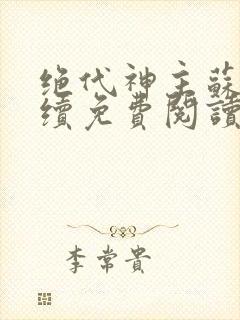 绝代神主蘇
續免費閱讀
李常貴